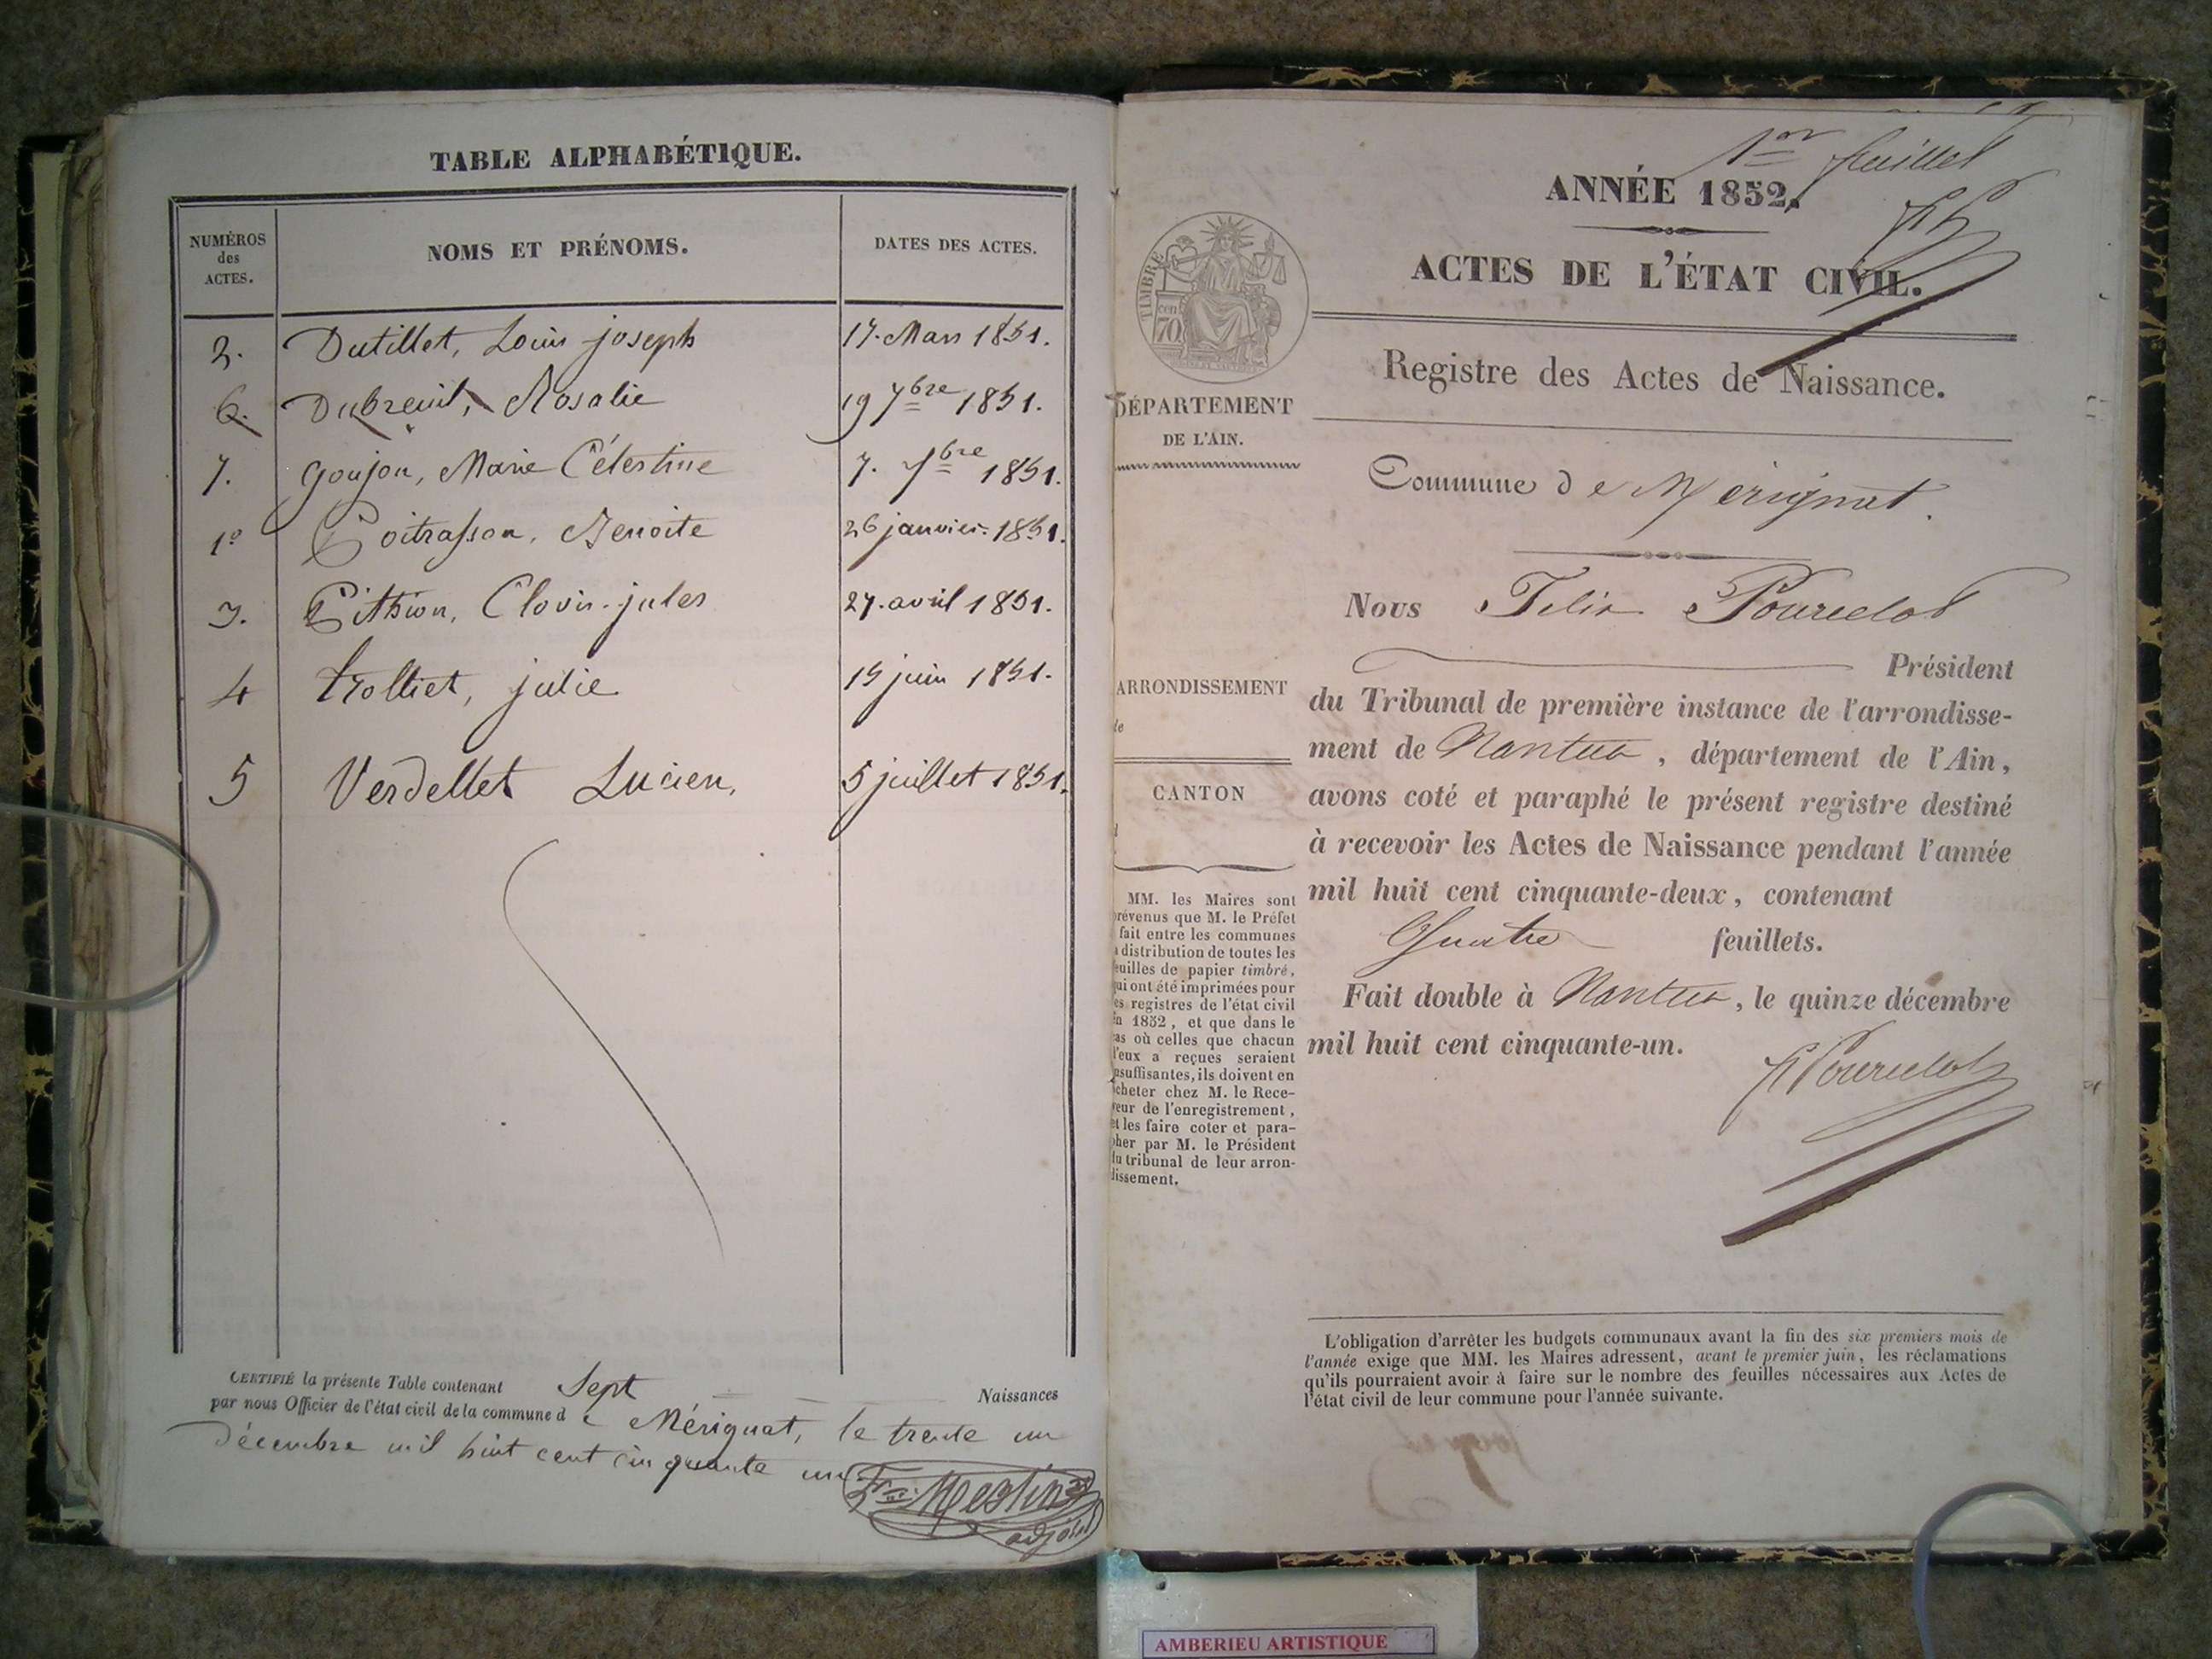 TABLE ALPHABÉTIQUE.
NUMÉROS
des
ACTES.
NOMS ET PRÉNOMS.
DATES DES ACTES.
2. Dutillet, Louis joseph 17. Mars 1851.
6. Dubreuil, Rosalie 19 7bre 1851.
7. Goujon, Marie Célestine 7. Xbre 1851.
1º Poitrasson, Benoite 26 janvier 1851.
3. Pithion, Clovis-jules 27. avril 1851.
4 trolliet, julie 15 juin 1851.
5 Verdellet Lucien, 5 juillet 1851.
CERTIFIÉ la présente Table contenant Sept Naissances
par nous Officier de l'état civil de la commune d e Mérignat, le trente un
décembre mil huit cent cinquante un
Mestin
adjoint
1er feuillet
ANNÉE 1852.
ACTES DE L'ÉTAT CIVIL.
Registre des Actes de Naissance.
TIMBRE
70 cen
DÉPARTEMENT
DE L'AIN.
ARRONDISSEMENT
de
CANTON
d
MM. les Maires sont
prévenus que M. le Préfet
fait entre les communes
a distribution de toutes les
feuilles de papier timbré,
qui ont été imprimées pour
les registres de l'état civil
en 1852, et que dans le
cas où celles que chacun
d'eux a reçues seraient
insuffisantes, ils doivent en
acheter chez M. le Rece-
veur de l'enregistrement,
et les faire coter et para-
pher par M. le Président
du tribunal de leur arron-
dissement.
Commune d e Mérignat.
Nous Félix Pourcelot
Président
du Tribunal de première instance de l'arrondisse-
ment de Nantua, département de l'Ain,
avons coté et paraphé le présent registre destiné
à recevoir les Actes de Naissance pendant l'année
mil huit cent cinquante-deux, contenant
Quatre feuillets.
Fait double à Nantua, le quinze décembre
mil huit cent cinquante-un.
F Pourcelot
L'obligation d'arrêter les budgets communaux avant la fin des six premiers mois de
l'année exige que MM. les Maires adressent, avant le premier juin, les réclamations
qu'ils pourraient avoir à faire sur le nombre des feuilles nécessaires aux Actes de
l'état civil de leur commune pour l'année suivante.
AMBERIEU ARTISTIQUE